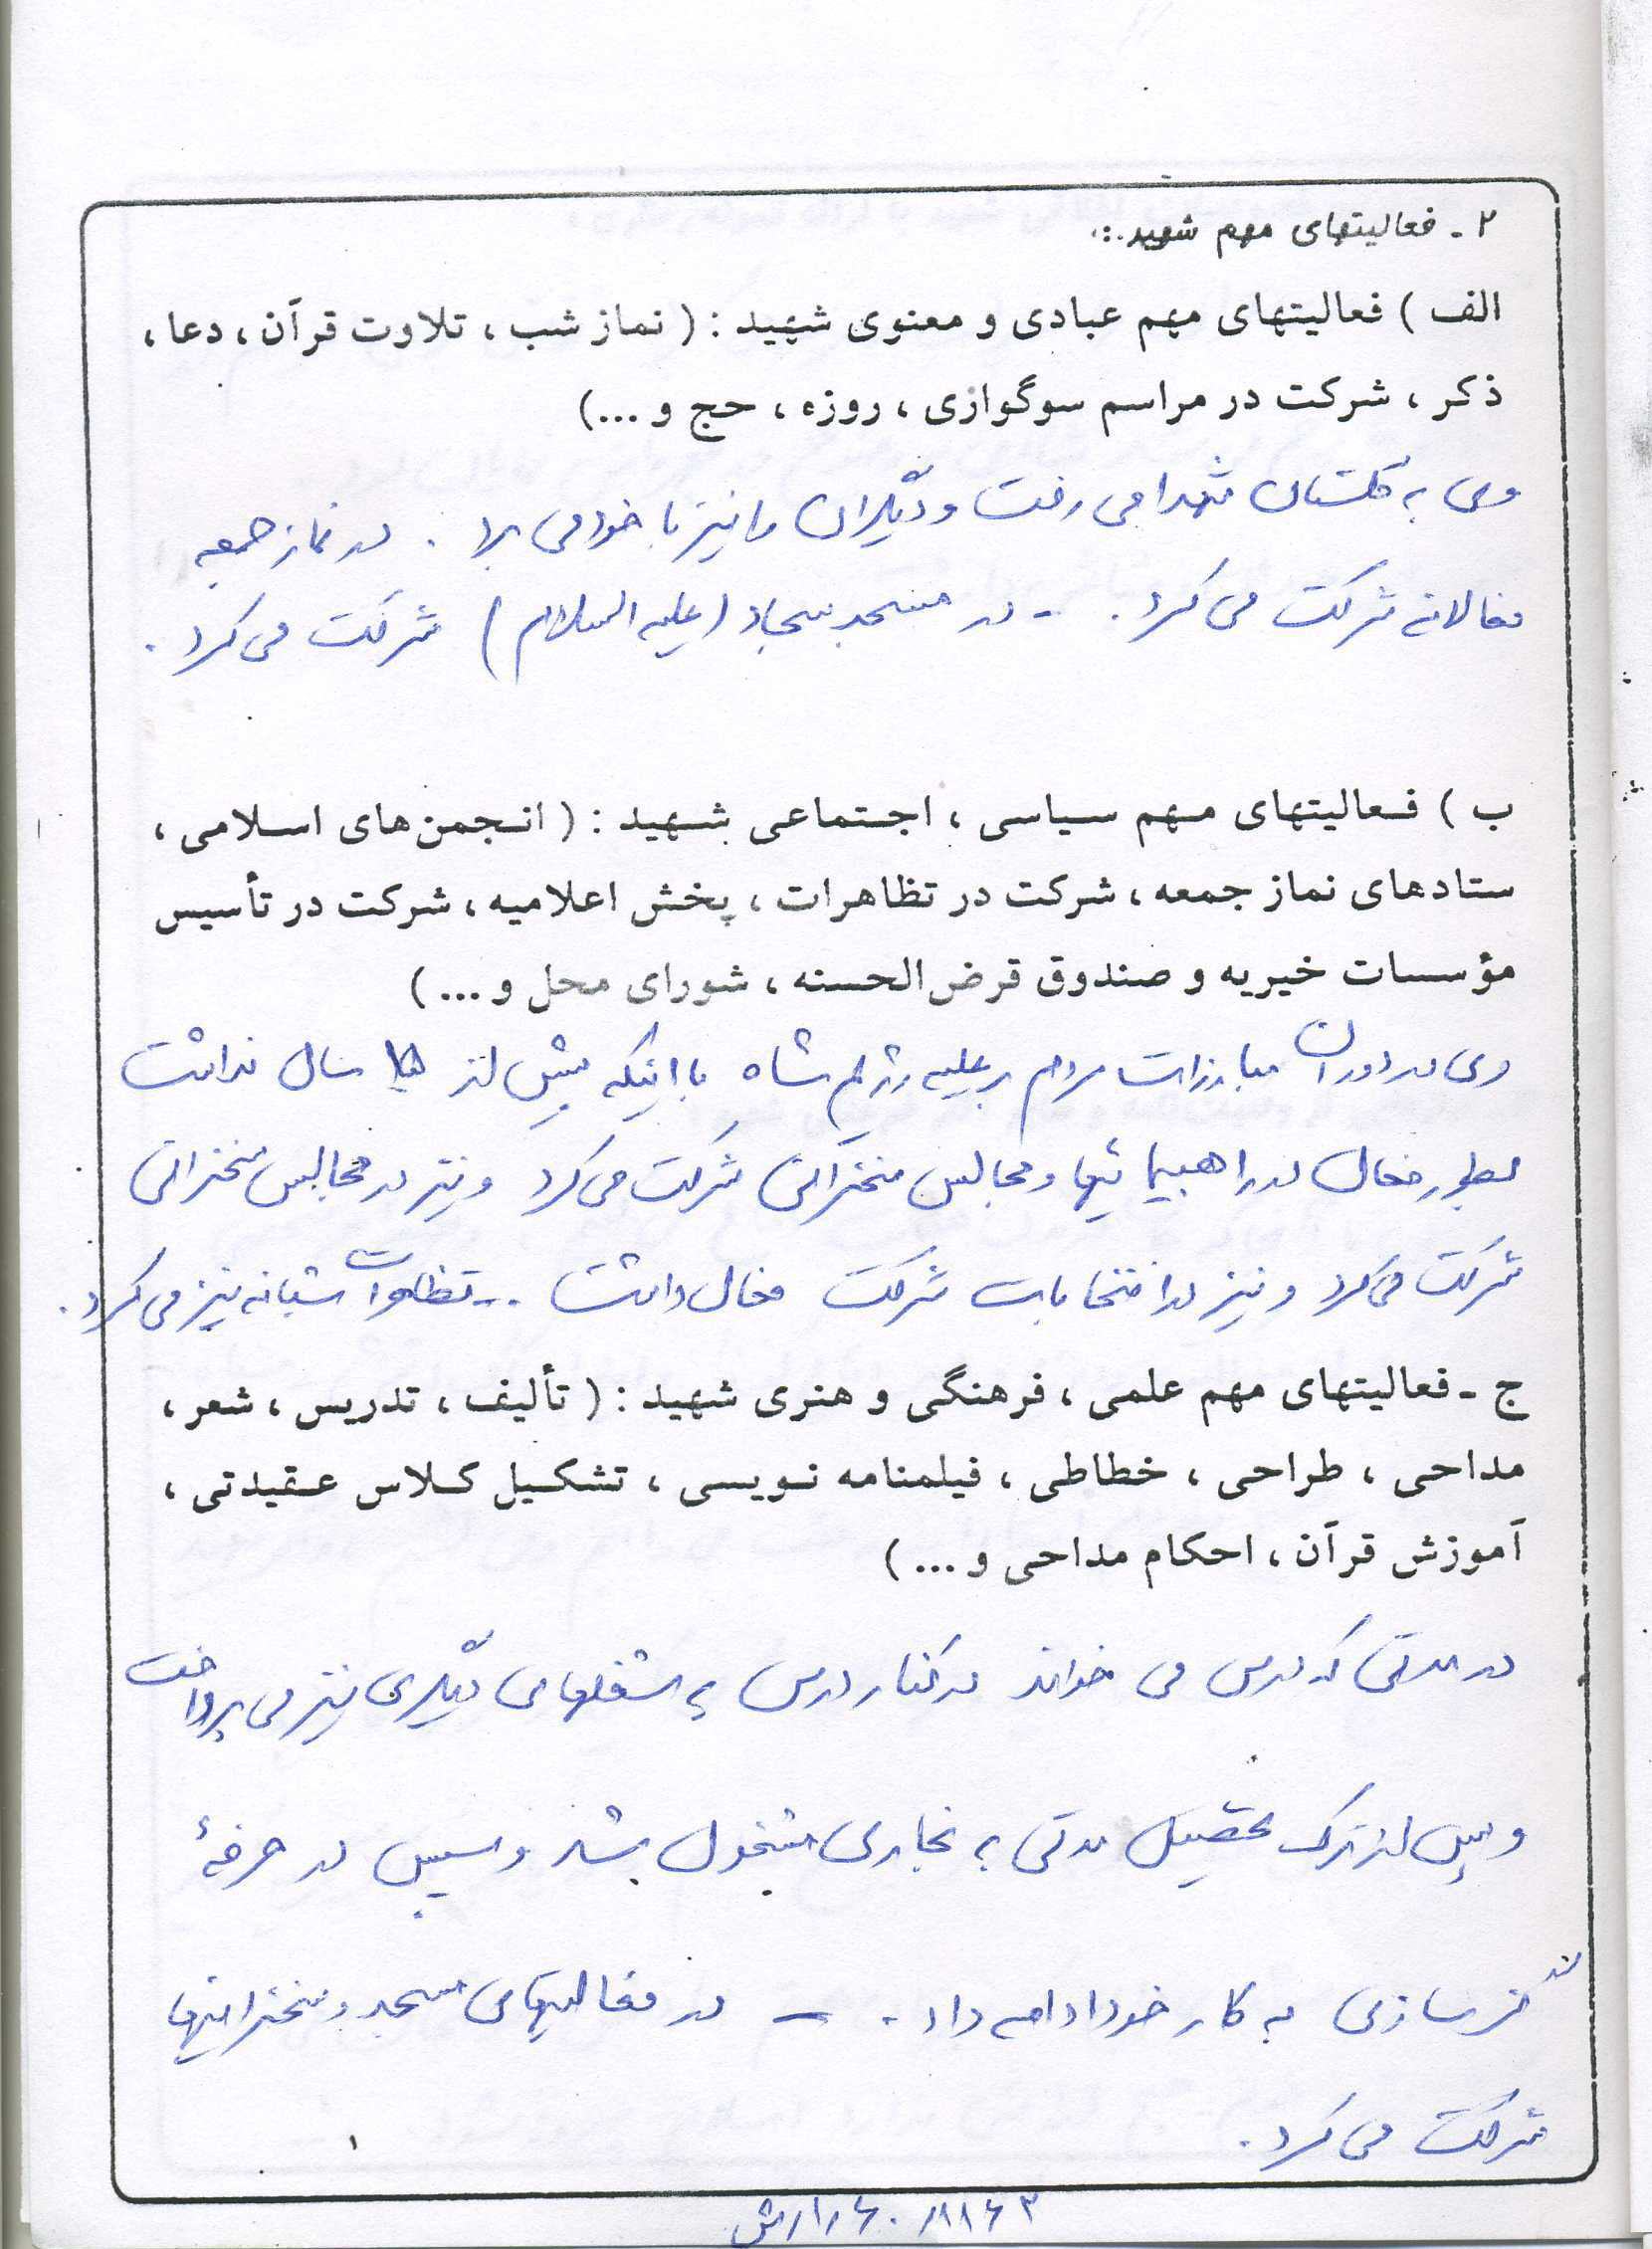 ۲ - فعالیتهای مهم شهید :
الف ) فعالیتهای مهم عبادی و معنوی شهید : ( نماز شب ، تلاوت قرآن ، دعا ،
ذکر ، شرکت در مراسم سوگوازی ، روزه ، حج و ...)
وی به گلستان شهدا می رفت و دیگران را نیز با خود می برد . در نماز جمعه
فعالانه شرکت می کرد . - در مسجد سجاد (علیه السلام ) شرکت می کرد .
ب ) فعالیتهای مهم سیاسی ، اجتماعی شهید : ( انجمن‌های اسلامی ،
ستادهای نماز جمعه ، شرکت در تظاهرات ، پخش اعلامیه ، شرکت در تأسیس
مؤسسات خیریه و صندوق قرض‌الحسنه ، شورای محل و ... )
وی در دوران مبارزات مردم بر علیه رژیم شاه با اینکه بیش از ۱۵ سال نداشت
بطور فعال در راهپیمائیها و مجالس سخنرانی شرکت می کرد و نیز در مجالس سخنرانی
شرکت می کرد و نیز در انتخابات شرکت فعال داشت .-- تظاهرات شبانه نیز می کرد .
ج - فعالیتهای مهم علمی ، فرهنگی و هنری شهید : ( تألیف ، تدریس ، شعر ،
مداحی ، طراحی ، خطاطی ، فیلمنامه نویسی ، تشکیل کلاس عقیدتی ،
آموزش قرآن ، احکام مداحی و ... )
در مدتی که درس می خواند در کنار درس به شغلهای دیگری نیز می پرداخت
و پس از ترک تحصیل مدتی به نجاری مشغول بشد و سپس در حرفهٔ
فرسازی به کار خود ادامه داد . - در فعالیتهای مسجد و سخنرانیها
شرکت می کرد .